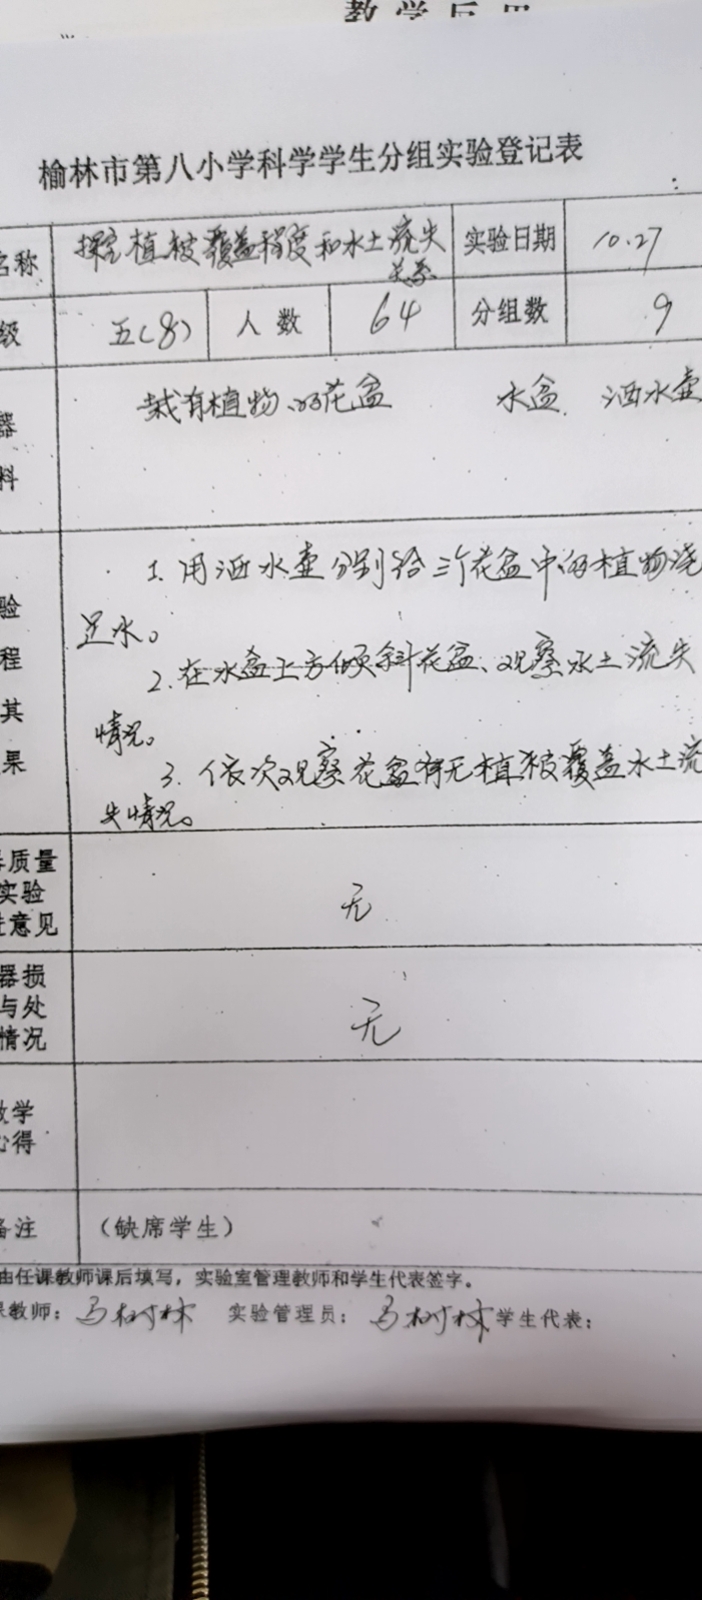 榆林市第八小学科学学生分组实验登记表
名称 探究植被覆盖程度和水土流失关系 实验日期 10.27
级 五(8) 人数 64 分组数 9
器 栽有植物的花盆 水盆 洒水壶
料
1.用洒水壶分别给三个花盆中的植物浇
验 足水。
程 2.在水盆上方倾斜花盆、观察水土流失
其 情况。
果 3.依次观察花盆有无植被覆盖水土流
失情况。
质量
实验 无
意见
器损
与处 无
情况
学
心得
备注 (缺席学生)
由任课教师课后填写，实验室管理教师和学生代表签字。
课教师：马树林 实验管理员：马树林 学生代表：